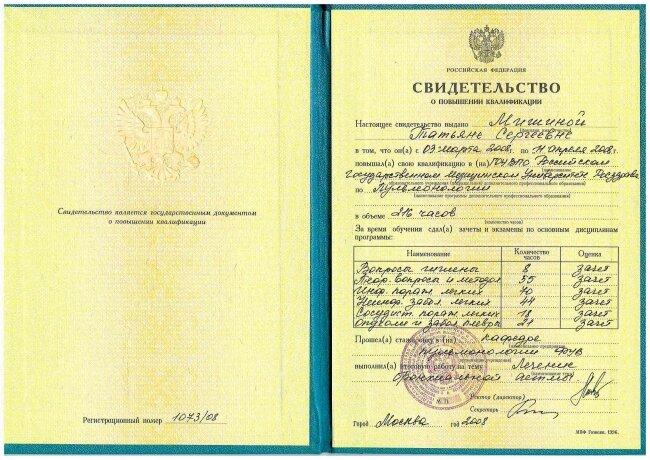 Свидетельство является государственным документом
о повышении квалификации
Регистрационный номер 1073/08
РОССИЙСКАЯ ФЕДЕРАЦИЯ
СВИДЕТЕЛЬСТВО
О ПОВЫШЕНИИ КВАЛИФИКАЦИИ
Настоящее свидетельство выдано Мишиной
Татьяне Сергеевне
в том, что он(а) с 03 марта 2008г. по апреля 2008г.
повышал(а) свою квалификацию в (на) ГОУ ВПО Российском
государственном медицинском университете Росздрава
(наименование образовательного учреждения (подразделения) дополнительного профессионального образования)
по Пульмонологии
(наименование программы дополнительного профессионального образования)
в объеме 216 часов
(количество часов)
За время обучения сдал(а) зачеты и экзамены по основным дисциплинам
программы:
Наименование Количество часов Оценка
Вопросы гигиены 8 зачет
Теор. вопросы и методол 55 зачет
Инф. пораж. легких 40 зачет
Неинф. забол. легких 44 зачет
Сосудист. пораж. легких 18 зачет
Опухоли и забол плевры 21 зачет
Прошел(а) стажировку в (на) кафедре
(наименование предприятия,
пульмонологии ФУВ
выполнил(а) итоговую работу на тему Лечение
бронхиальной астмы
Ректор (директор)
Секретарь
Город Москва год 2008
МПФ Гознака. 1996.